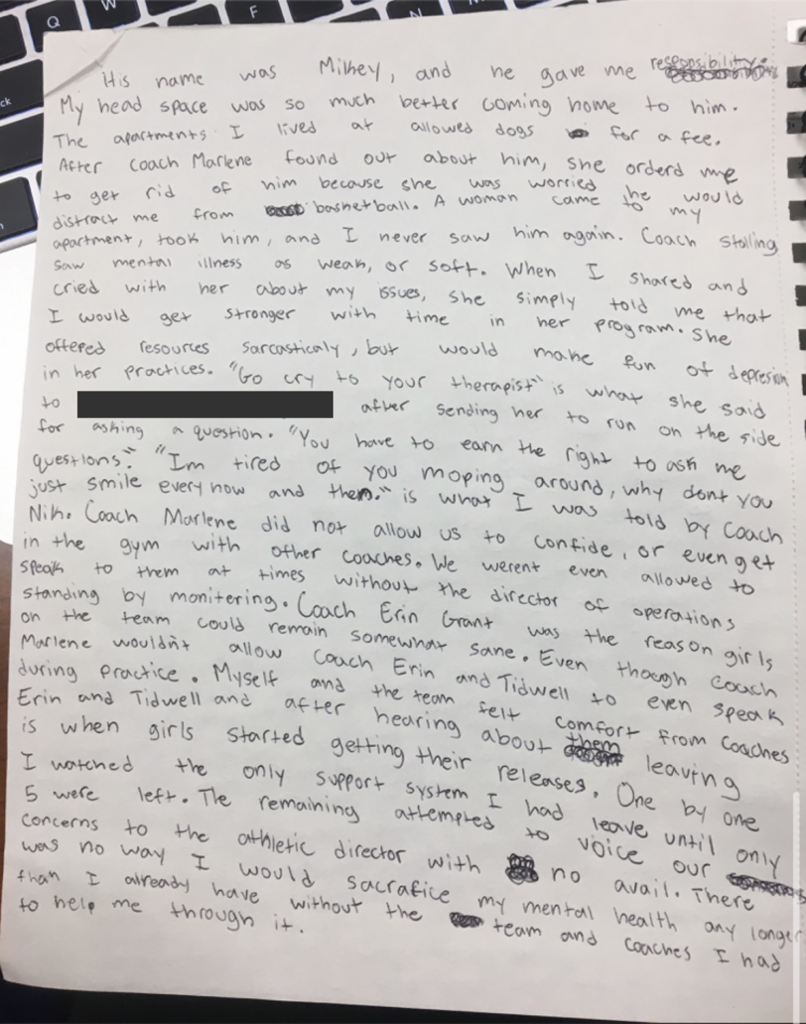 His name was Mikey, and he gave me responsibility.
My head space was so much better coming home to him.
The apartments I lived at allowed dogs for a fee.
After coach Marlene found out about him, she orderd me
to get rid of him because she was worried he would
distract me from basketball. A woman came to my
apartment, took him, and I never saw him again. Coach Stolling
saw mental illness as weak, or soft. When I shared and
cried with her about my issues, she simply told me that
I would get stronger with time in her program. She
offered resources sarcasticaly, but would make fun of depresion
in her practices. "Go cry to your therapist" is what she said
to after sending her to run on the side
for asking a question. "You have to earn the right to ask me
questions". "Im tired of you moping around, why dont you
just smile every now and then." is what I was told by Coach
Nik. Coach Marlene did not allow us to confide, or even get
in the gym with other coaches. We werent even allowed to
speak to them at times without the director of operations
standing by monitering. Coach Erin Grant was the reason girls
on the team could remain somewhat sane. Even though Coach
Marlene wouldn't allow Coach Erin and Tidwell to even speak
during practice. Myself and the team felt comfort from Coaches
Erin and Tidwell and after hearing about them leaving
is when girls started getting their releases. One by one
I watched the only support system I had leave until only
5 were left. The remaining attempted to voice our
concerns to the athletic director with no avail. There
was no way I would sacrafice my mental health any longer
than I already have without the team and coaches I had
to help me through it.
Q
F